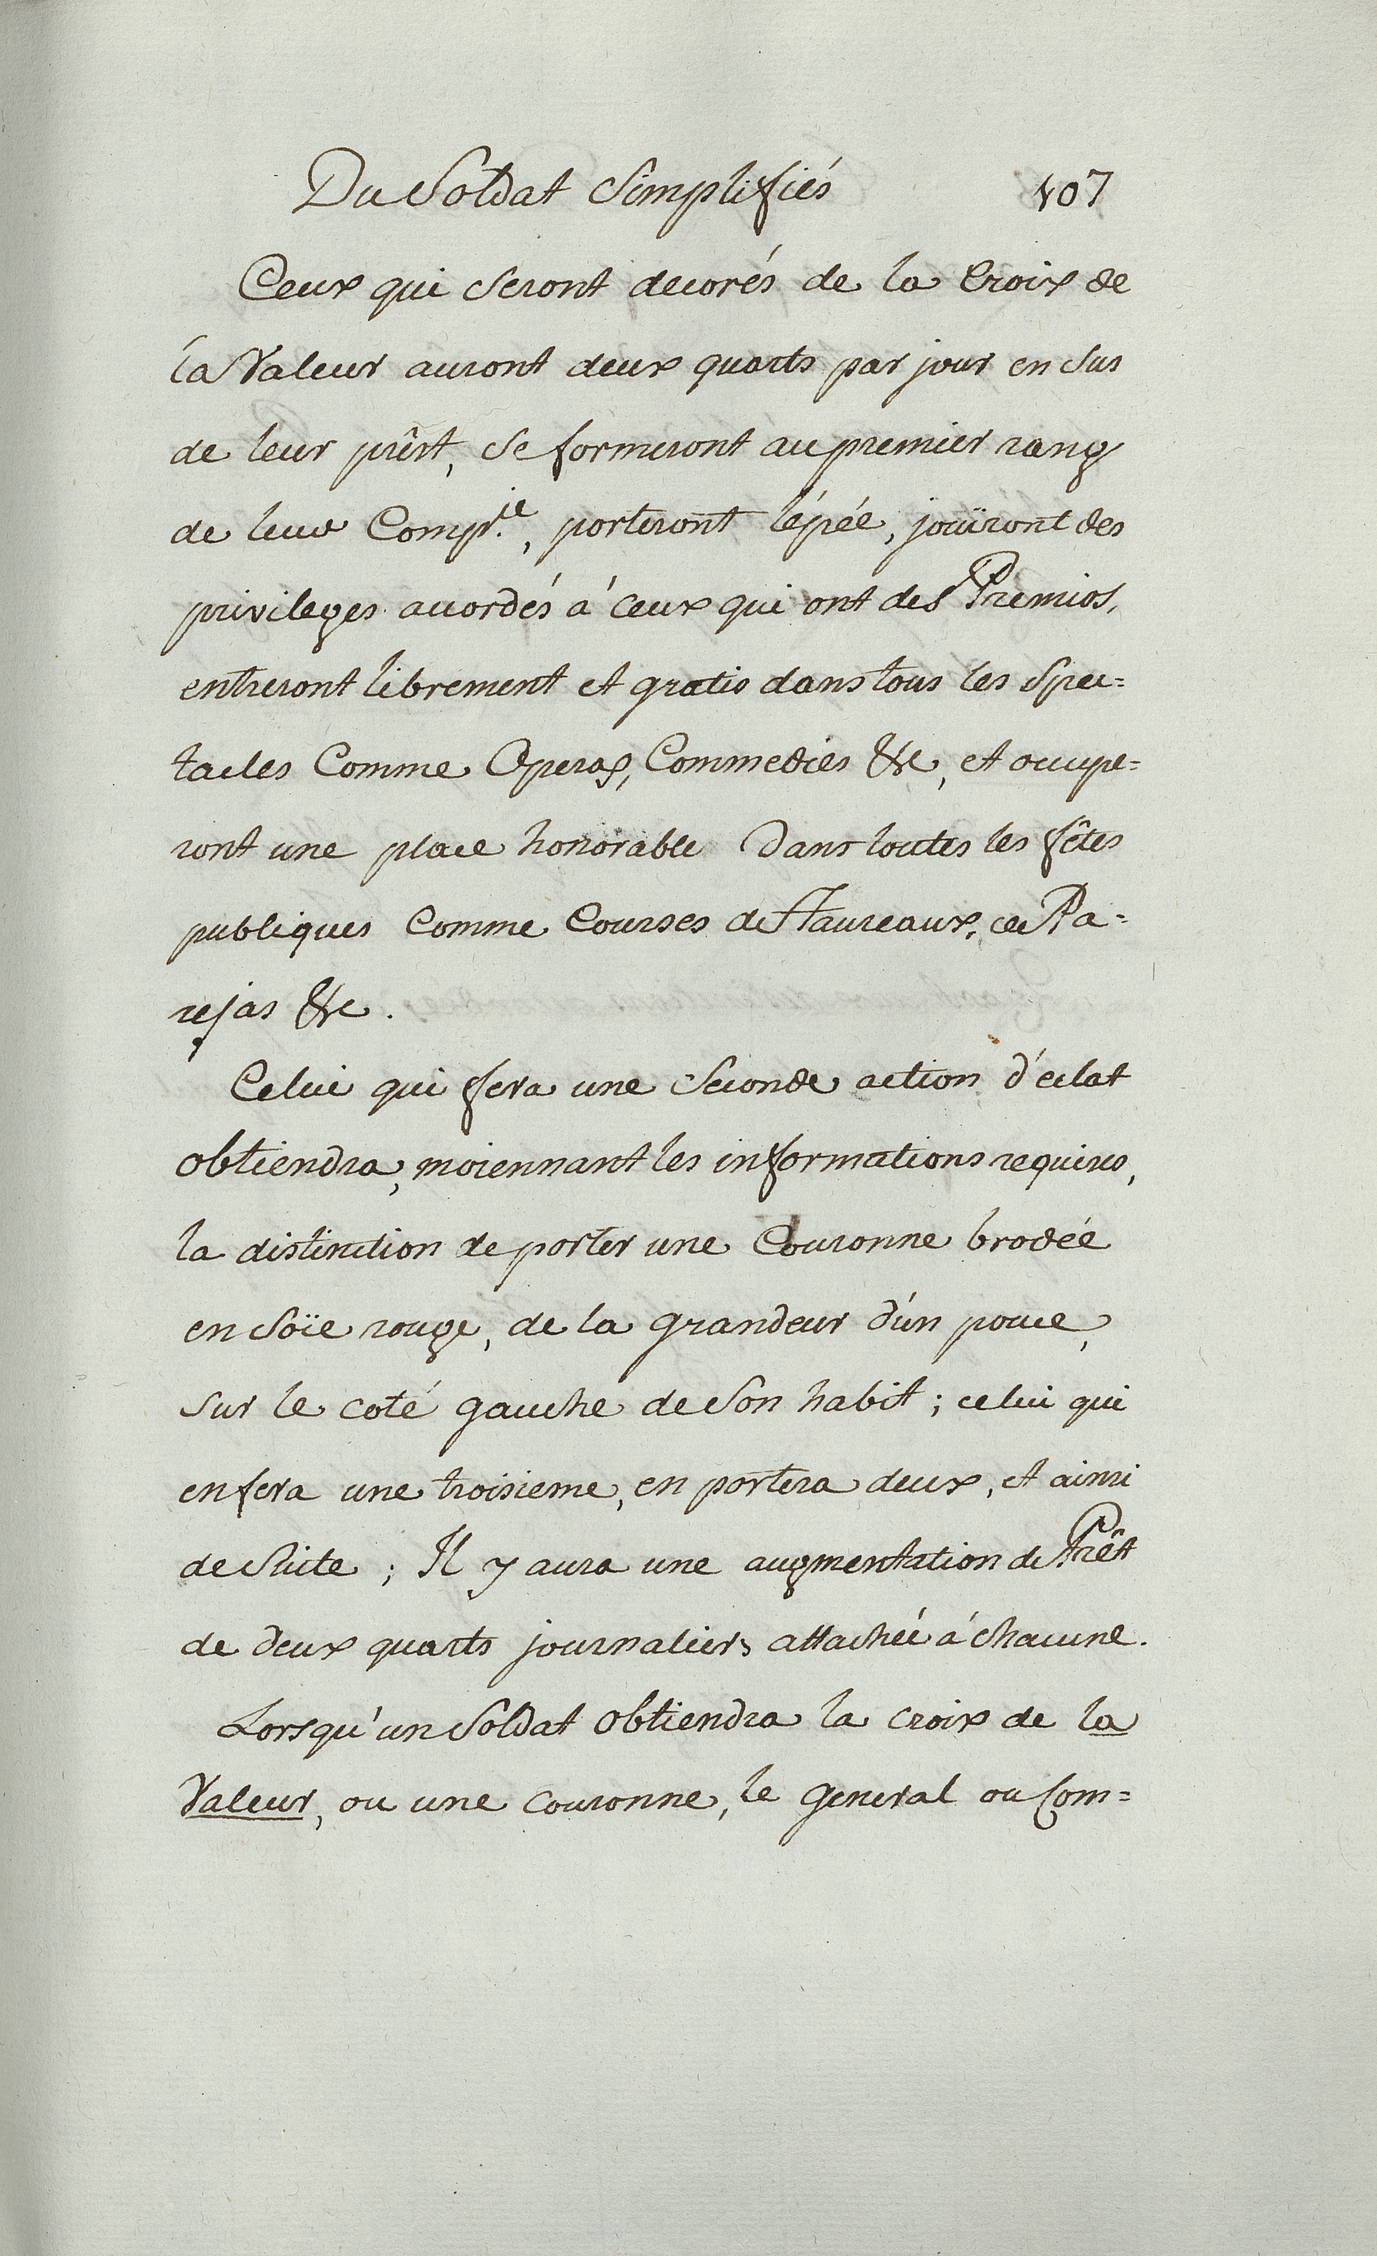 Du Soldat Simplifiés 107
Ceux qui seront decorés de la Croix de
la Valeur auront deux quarts par jour en sus
de leur prêst, se formeront au premier rang
de leur Comp.ie, porteront l'épée, joüiront des
privileges accordés á ceux qui ont des Premios,
entreront librement et gratis dans tous les Spec=
tacles Comme Operas, Commedies &c, et occupe=
ront une place honorable Dans toutes les fêtes
publiques Comme Courses de Taureaux, de Pa=
rejas &c.
Celui qui fera une Seconde action d'éclat
obtiendra, moiennant les informations requises,
la distinction de porter une Couronne brodée
en Soïe rouge, de la grandeur d'un pouce,
sur le coté gauche de Son habit ; celui qui
en fera une troisieme, en portera deux, et ainsi
de Suite ; Il y aura une augmentation de Prêt
de deux quarts journaliers attachée á chacune.
Lorsqu'un Soldat obtiendra la croix de la
Valeur, ou une couronne, le general ou Com=